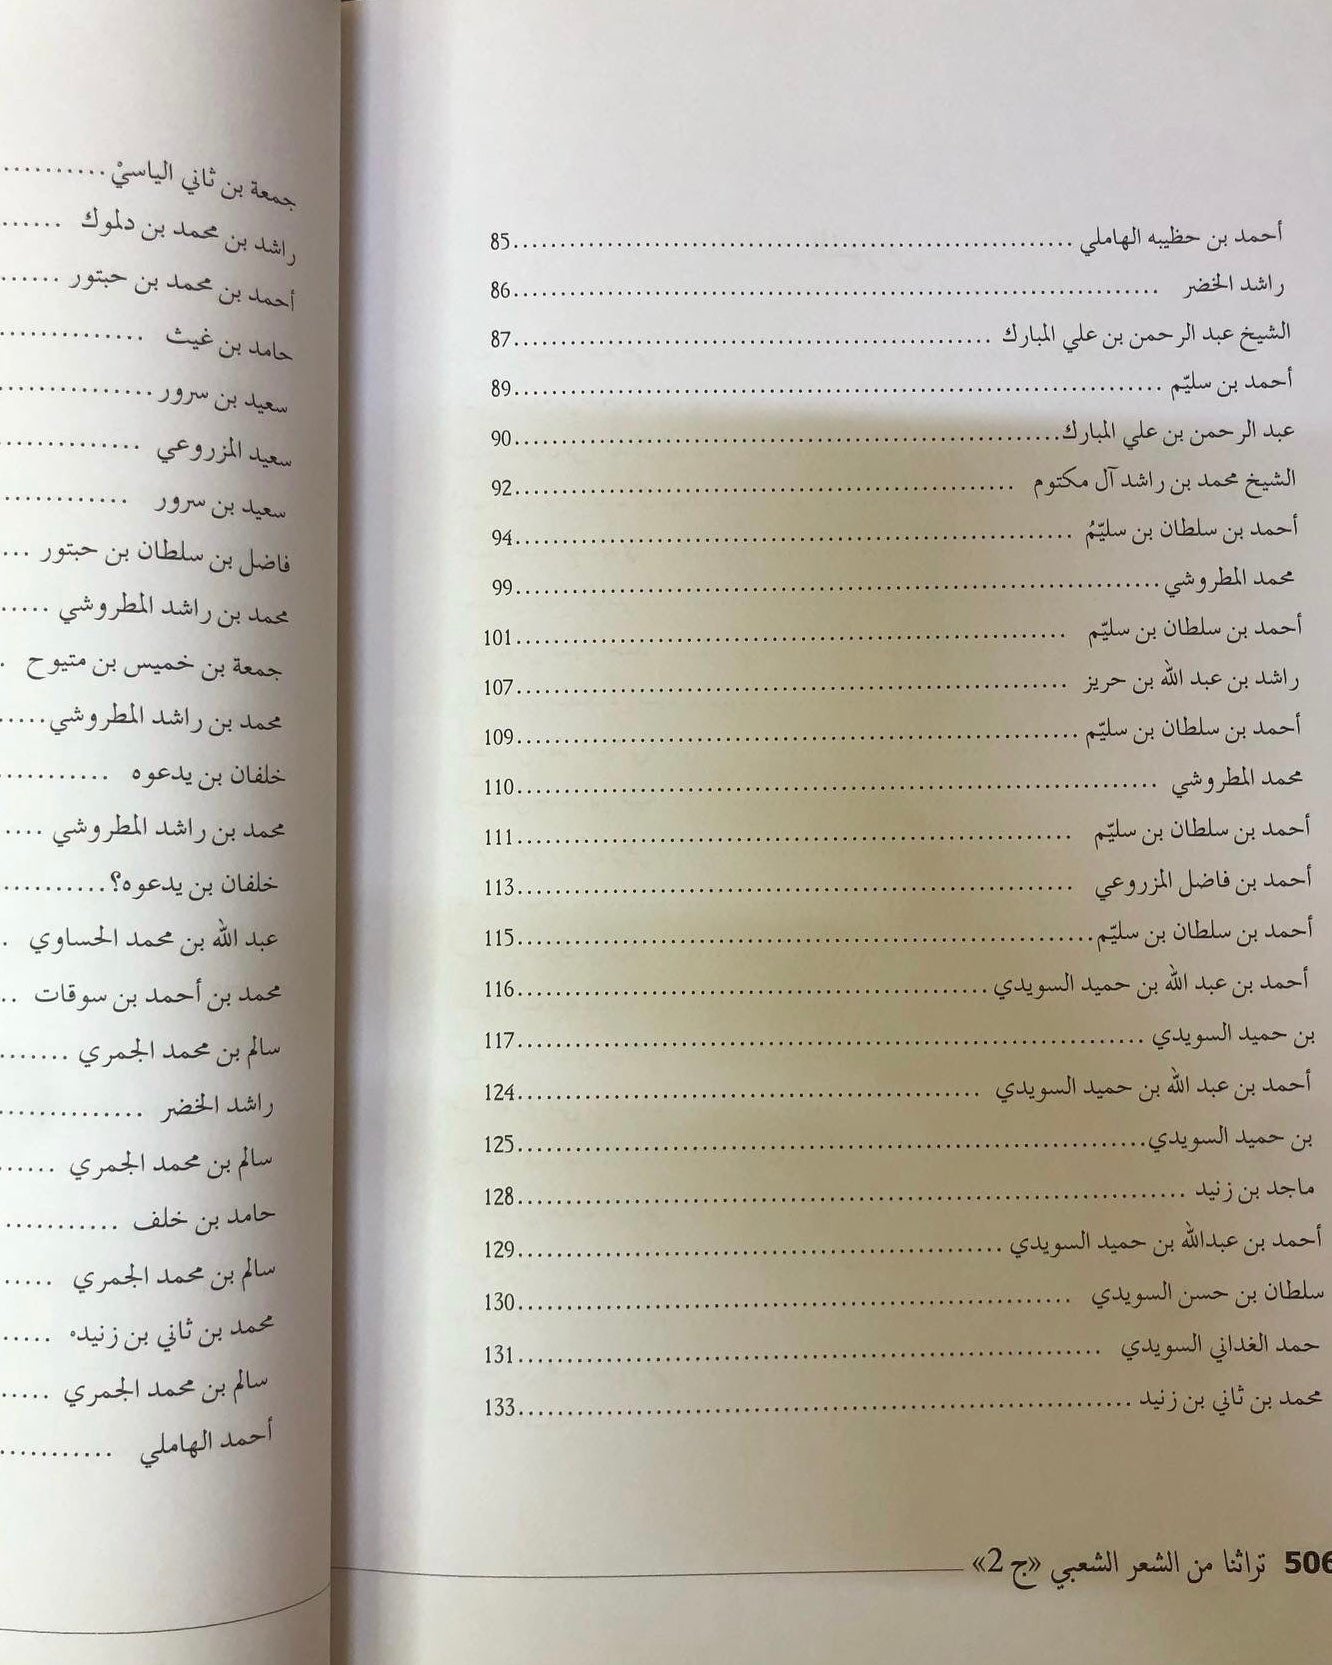 أحمد بن حظيبه الهاملي ........ 85
راشد الخضر ........ 86
الشيخ عبد الرحمن بن علي المبارك ........ 87
أحمد بن سليّم ........ 89
عبد الرحمن بن علي المبارك ........ 90
الشيخ محمد بن راشد آل مكتوم ........ 92
أحمد بن سلطان بن سليّمُ ........ 94
محمد المطروشي ........ 99
أحمد بن سلطان بن سليّم ........ 101
راشد بن عبد الله بن حريز ........ 107
أحمد بن سلطان بن سليّم ........ 109
محمد المطروشي ........ 110
أحمد بن سلطان بن سليّم ........ 111
أحمد بن فاضل المزروعي ........ 113
أحمد بن سلطان بن سليّم ........ 115
أحمد بن عبد الله بن حميد السويدي ........ 116
بن حميد السويدي ........ 117
أحمد بن عبد الله بن حميد السويدي ........ 124
بن حميد السويدي ........ 125
ماجد بن زنيد ........ 128
أحمد بن عبدالله بن حميد السويدي ........ 129
سلطان بن حسن السويدي ........ 130
حمد الغداني السويدي ........ 131
محمد بن ثاني بن زنيد ........ 133
506 تراثنا من الشعر الشعبي «ج 2»
جمعة بن ثاني الياسيْ ........
راشد بن محمد بن دلموك ........
أحمد بن محمد بن حبتور ........
حامد بن غيث ........
سعيد بن سرور ........
سعيد المزروعي ........
سعيد بن سرور ........
فاضل بن سلطان بن حبتور ...
محمد بن راشد المطروشي .....
جمعة بن خميس بن متيوح .
محمد بن راشد المطروشي .....
خلفان بن يدعوه ........
محمد بن راشد المطروشي ....
خلفان بن يدعوه؟ ........
عبد الله بن محمد الحساوي .
محمد بن أحمد بن سوقات ..
سالم بن محمد الجمري ........
راشد الخضر ........
سالم بن محمد الجمري ......
حامد بن خلف ........
سالم بن محمد الجمري .....
محمد بن ثاني بن زنيده .....
سالم بن محمد الجمري .....
أحمد الهاملي ........